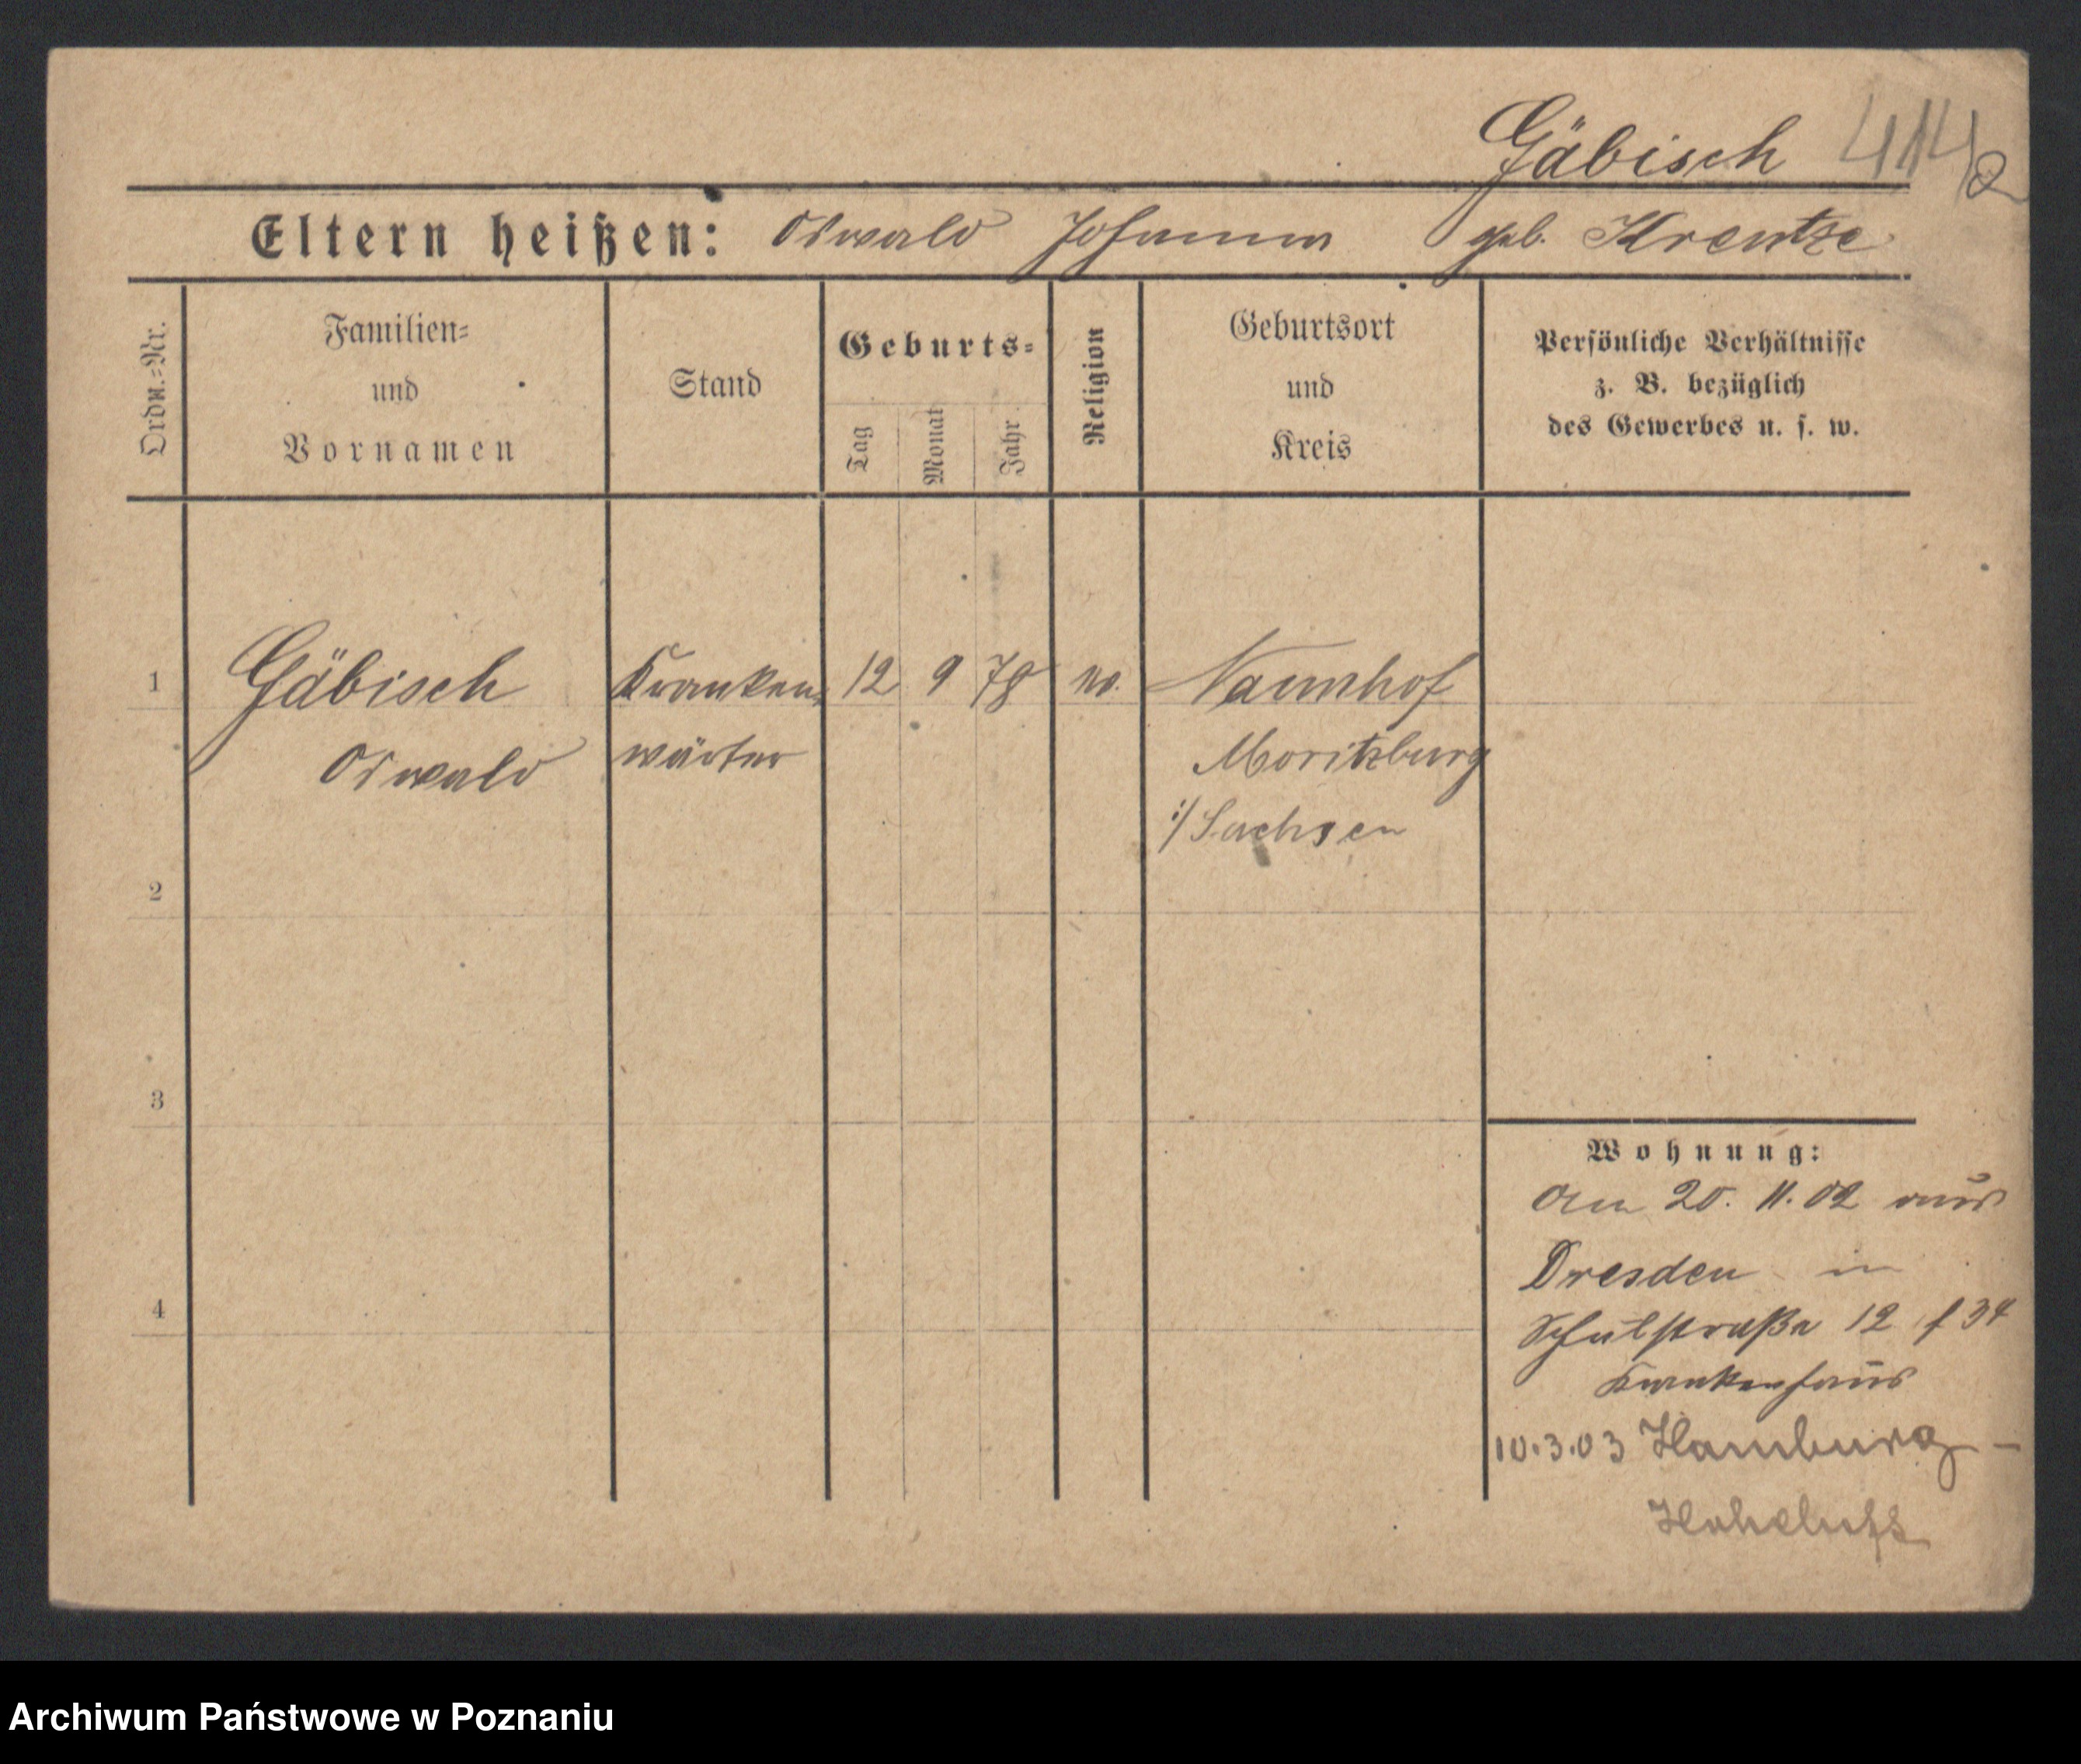 Gäbisch 414/2
Eltern heißen: Oswald Johanna geb. Krentze
Ordn.-Nr.
Familien-
und
Vornamen
Stand
Geburts-
Tag
Monat
Jahr
Religion
Geburtsort
und
Kreis
Persönliche Verhältnisse
z. B. bezüglich
des Gewerbes u. s. w.
1 Gäbisch Kranken- 12 9 78 ev. Naunhof
Oswald wärter Moritzburg
i/Sachsen
2
3
4
Wohnung:
Am 20. 11. 02 aus
Dresden in
Schulstraße 12 f 34
Krankenhaus
10.3.03 Hamburg -
Archiwum Państwowe w Poznaniu